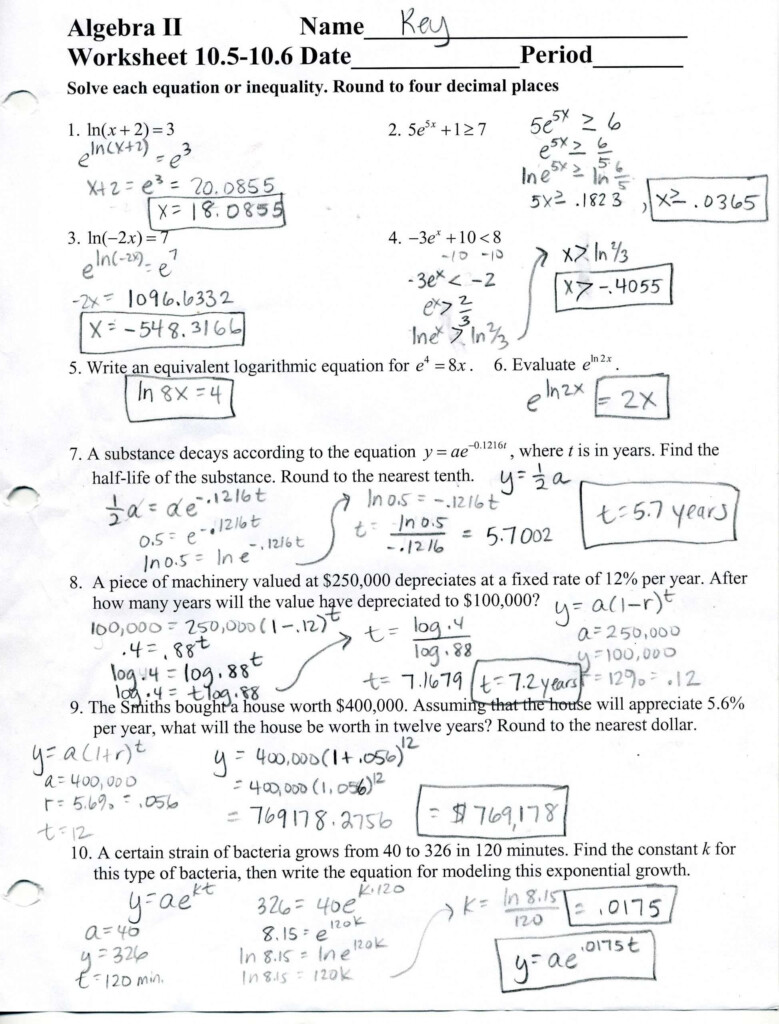 Algebra II Name Key
Worksheet 10.5-10.6 Date Period
Solve each equation or inequality. Round to four decimal places
1. ln(x + 2) = 3
e^ln(x+2) = e^3
x+2 = e^3 = 20.0855
x = 18.0855
2. 5e^5x + 1 ≥ 7
5e^5x ≥ 6
e^5x ≥ 6/5
ln e^5x ≥ ln 6/5
5x ≥ .1823 , x ≥ .0365
3. ln(−2x) = 7
e^ln(-2x) = e^7
-2x = 1096.6332
x = -548.3166
4. −3e^x + 10 < 8
-10 -10
-3e^x < -2
e^x > 2/3
ln e^x > ln 2/3
x > ln 2/3
x > -.4055
5. Write an equivalent logarithmic equation for e^4 = 8x.
ln 8x = 4
6. Evaluate e^ln 2x.
e^ln2x = 2x
7. A substance decays according to the equation y = ae^−0.1216t, where t is in years. Find the
half-life of the substance. Round to the nearest tenth. y = 1/2 a
1/2 a = ae^-.1216t
0.5 = e^-.1216t
ln 0.5 = ln e^-.1216t
ln 0.5 = -.1216t
t = ln 0.5/-.1216 = 5.7002
t = 5.7 years
8. A piece of machinery valued at $250,000 depreciates at a fixed rate of 12% per year. After
how many years will the value have depreciated to $100,000? y = a(1-r)^t
100,000 = 250,000(1-.12)^t
.4 = .88^t
log .4 = log .88^t
log .4 = t log .88
t = log .4/log .88
t = 7.1679 t = 7.2 years
a = 250,000
y = 100,000
r = 12% = .12
9. The Smiths bought a house worth $400,000. Assuming that the house will appreciate 5.6%
per year, what will the house be worth in twelve years? Round to the nearest dollar.
y = a(1+r)^t
a = 400,000
r = 5.6% = .056
t = 12
y = 400,000(1+.056)^12
= 400,000(1.056)^12
= 769178.2756
= $769,178
10. A certain strain of bacteria grows from 40 to 326 in 120 minutes. Find the constant k for
this type of bacteria, then write the equation for modeling this exponential growth.
y = ae^kt
a = 40
y = 326
t = 120 min.
326 = 40e^k·120
8.15 = e^120k
ln 8.15 = ln e^120k
ln 8.15 = 120k
k = ln 8.15/120 = .0175
y = ae^.0175t